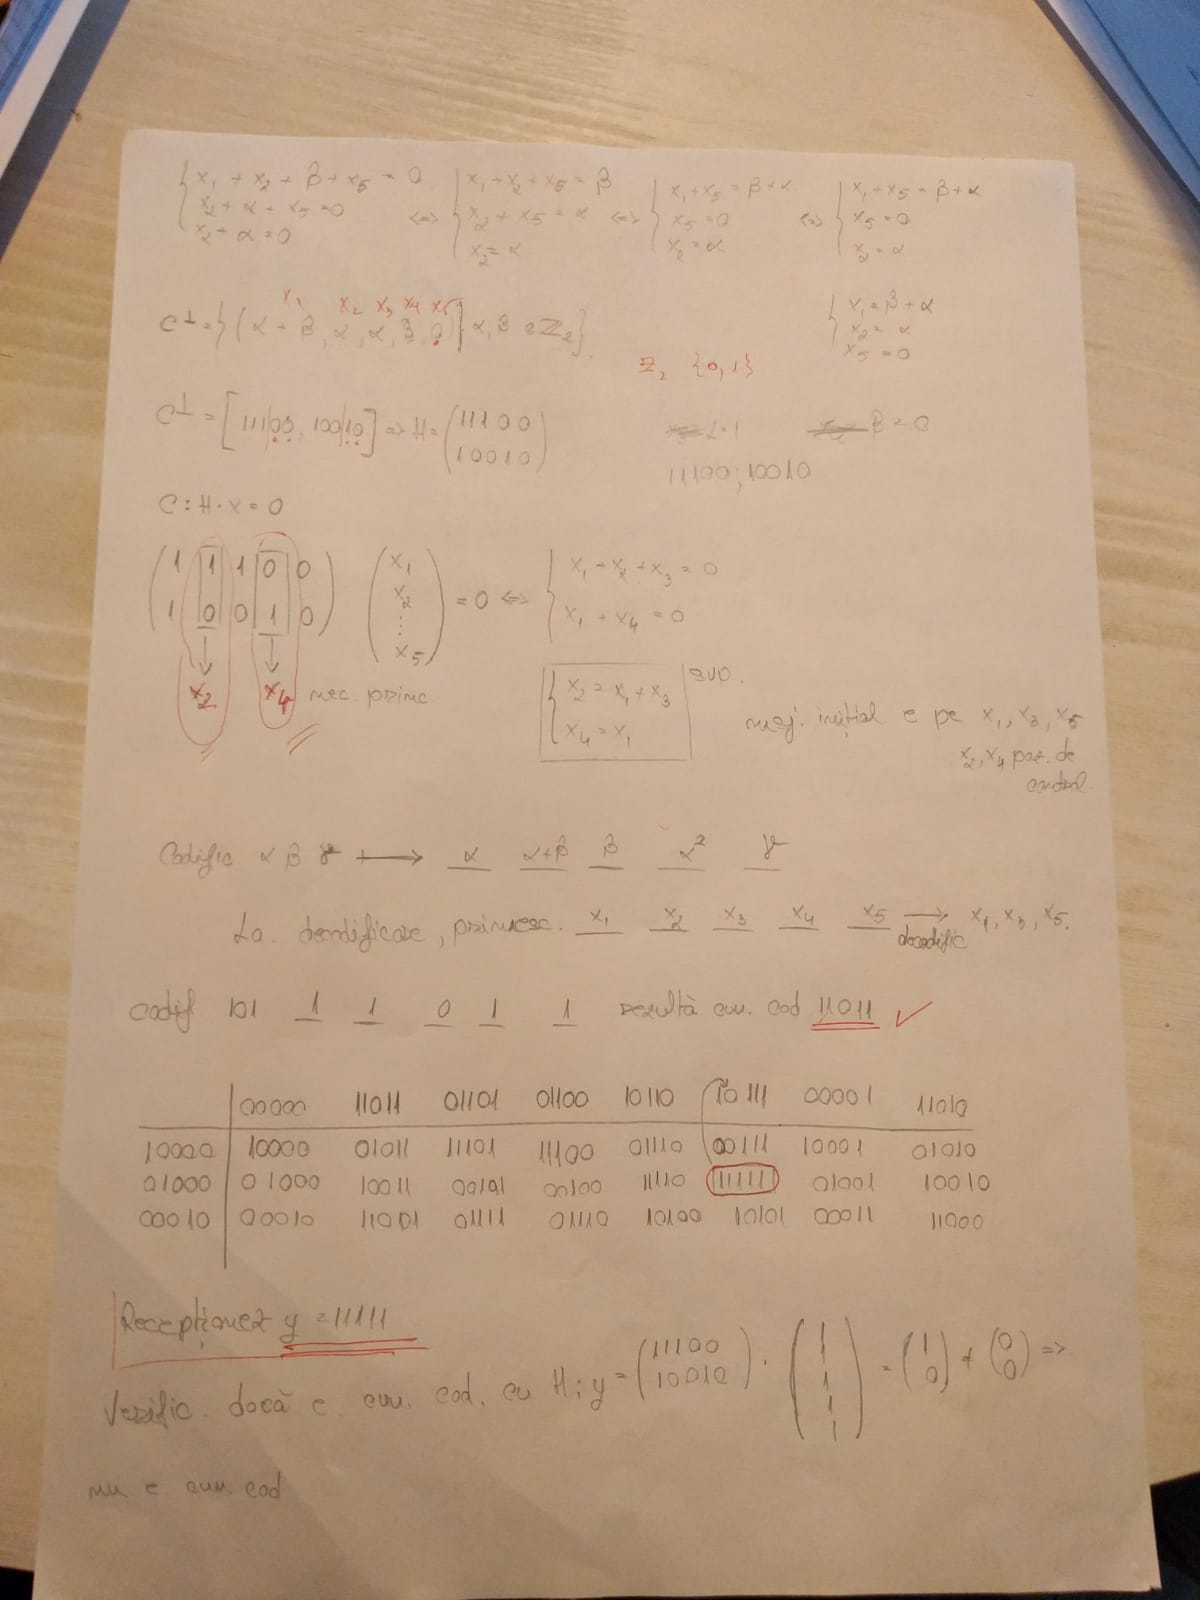 { x₁ + x₂ + β + x₅ = 0
x₂ + α + x₅ = 0
x₂ + α = 0
<=> { x₁ + x₂ + x₅ = β
x₂ + x₅ = α
x₂ = α
<=> { x₁ + x₅ = β + α
x₅ = 0
x₂ = α
<=> { x₁ + x₅ = β + α
x₅ = 0
x₂ = α
{ x₁ = β + α
x₂ = α
x₅ = 0
x₁ x₂ x₃ x₄ x₅
C⊥ = { (α + β, α, α, β, 0) | α, β ∈ ℤ₂ }
ℤ₂ {0,1}
C⊥ = [11100, 10010] => H = ( 11100
10010 )
α=1 β = 0
11100; 10010
C : H · x = 0
( 1 1 1 0 0
1 0 0 1 0 ) ( x₁
x₂
⋮
x₅ ) = 0 <=> { x₁ + x₂ + x₃ = 0
x₁ + x₄ = 0
↓ ↓
x₂ x₄ nec. princ.
{ x₂ = x₁ + x₃
x₄ = x₁
sup.
mesj. inițial e pe x₁, x₃, x₅
x₂, x₄ poz. de
control
Codific α β γ ⟼ α α+β β α² γ
La decodificare, primesc. x₁ x₂ x₃ x₄ x₅ → decodific x₁, x₃, x₅.
codif 101 1 1 0 1 1 rezultă cuv. cod 11011 ✓
00000 11011 01101 01100 10110 10111 00001 11010
10000 10000 01011 11101 11100 01110 00111 10001 01010
01000 01000 10011 00101 00100 11110 11111 01001 10010
00010 00010 11001 01111 01110 10100 10101 00011 11000
Recepționez y = 11111
Verific. dacă e. cuv. cod. cu H; y = ( 11100
10010 ) · ( 1
1
1
1
1 ) = ( 1
0 ) ≠ ( 0
0 ) =>
nu e. cuv. cod